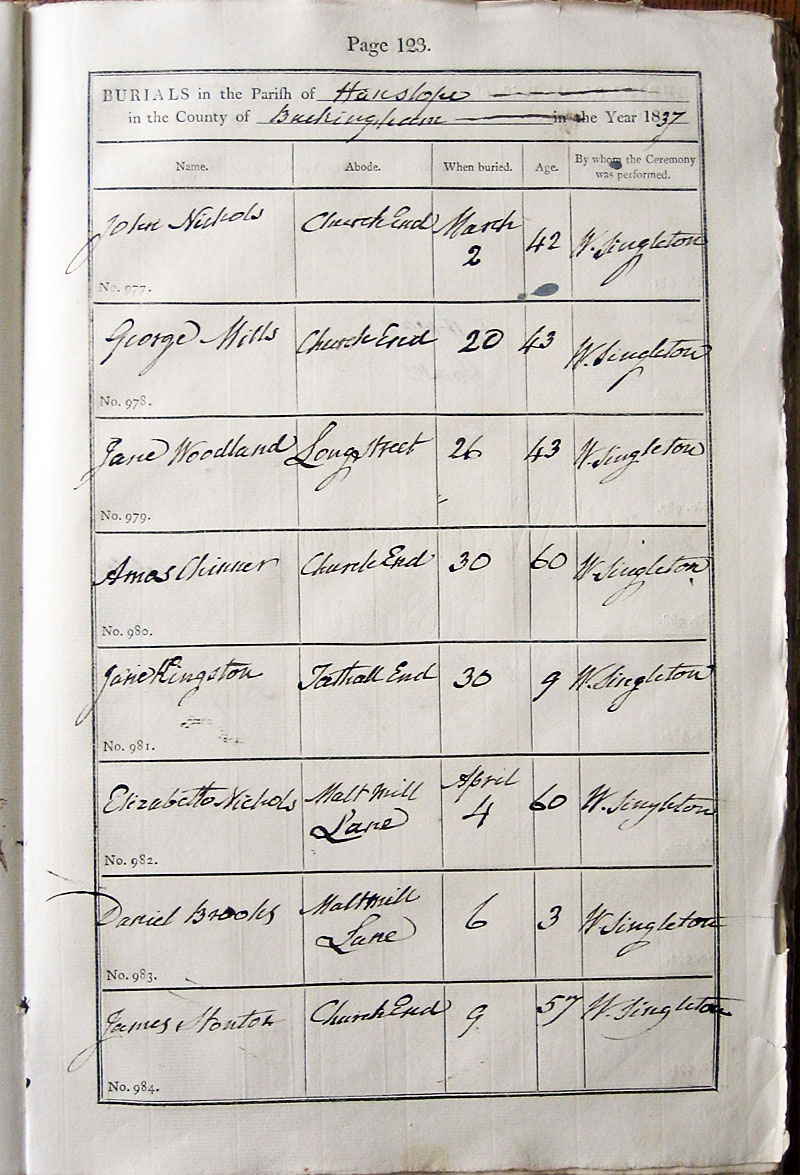 Page 123.
BURIALS in the Parish of Hanslope
in the County of Buckingham in the Year 1837
Name. Abode. When buried. Age. By whom the Ceremony was performed.
John Nichols Church End March 2 42 W. Singleton
No. 977.
George Mills Church End 20 43 W. Singleton
No. 978.
Jane Woodland Long Street 26 43 W. Singleton
No. 979.
Amos Chinner Church End 30 60 W. Singleton
No. 980.
Jane Kingston Tathall End 30 9 W. Singleton
No. 981.
Elizabeth Nichols Malt Mill Lane April 4 60 W. Singleton
No. 982.
Daniel Brooks Maltmill Lane 6 3 W. Singleton
No. 983.
James Stonton Church End 9 57 W. Singleton
No. 984.